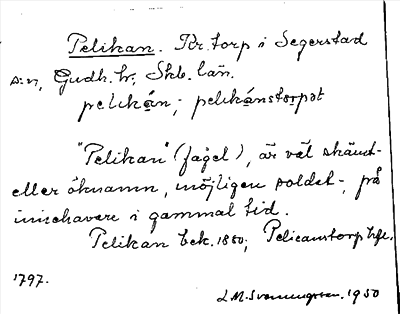 Pelikan. Kr. torp i Segerstad
s:n, Gudh. hr, Skb. län.
pelikán; pelikánstorpət
"Pelikan" (fågel), är väl skämt-
eller öknamn, möjligen soldat-, på
innehavare i gammal tid.
Pelikan bek. 1880; Pelicanstorp hfl.
1797.
L.M. Svenungsson. 1950